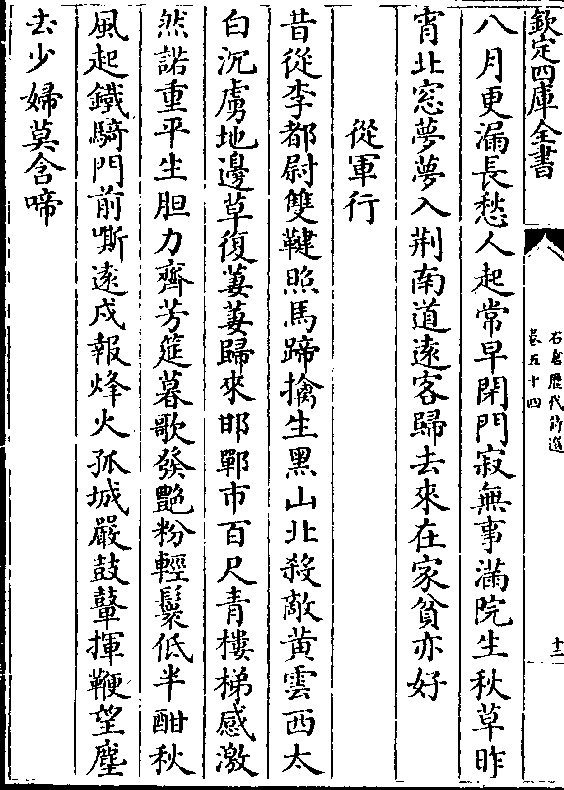 欽定四庫全書
石倉歷代詩選
卷五十四
十二
八月更漏長愁人起常早閉門寂無事滿院生秋草昨
宵北窓夢夢入荆南道遠客歸去來在家貧亦好
從軍行
昔從李都尉雙鞬照馬蹄擒生黑山北殺敵黄雲西太
白沉虜地邊草復萋萋歸來邯鄲市百尺青樓梯感激
然諾重平生胆力齊芳筵暮歌發艷粉輕鬟低半酣秋
風起鐵騎門前嘶遠戍報烽火孤城嚴鼓鼙揮鞭望塵
去少婦莫含啼